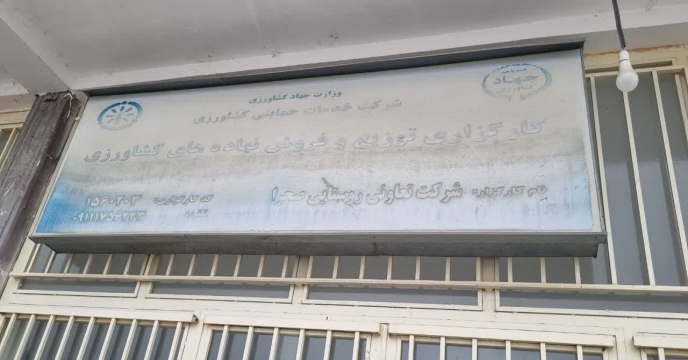 جهاد
کشاورزی
وزارت جهاد کشاورزی
شرکت خدمات حمایتی کشاورزی
کارگزاری توزیع و فروش نهاده های کشاورزی
نام کارگزار: شرکت تعاونی روستایی صحرا
کد کارگزاری: ۱۵۶۰۲۰۳
تلفن: ۰۹۱۱۱۷۵۶۲۲۳